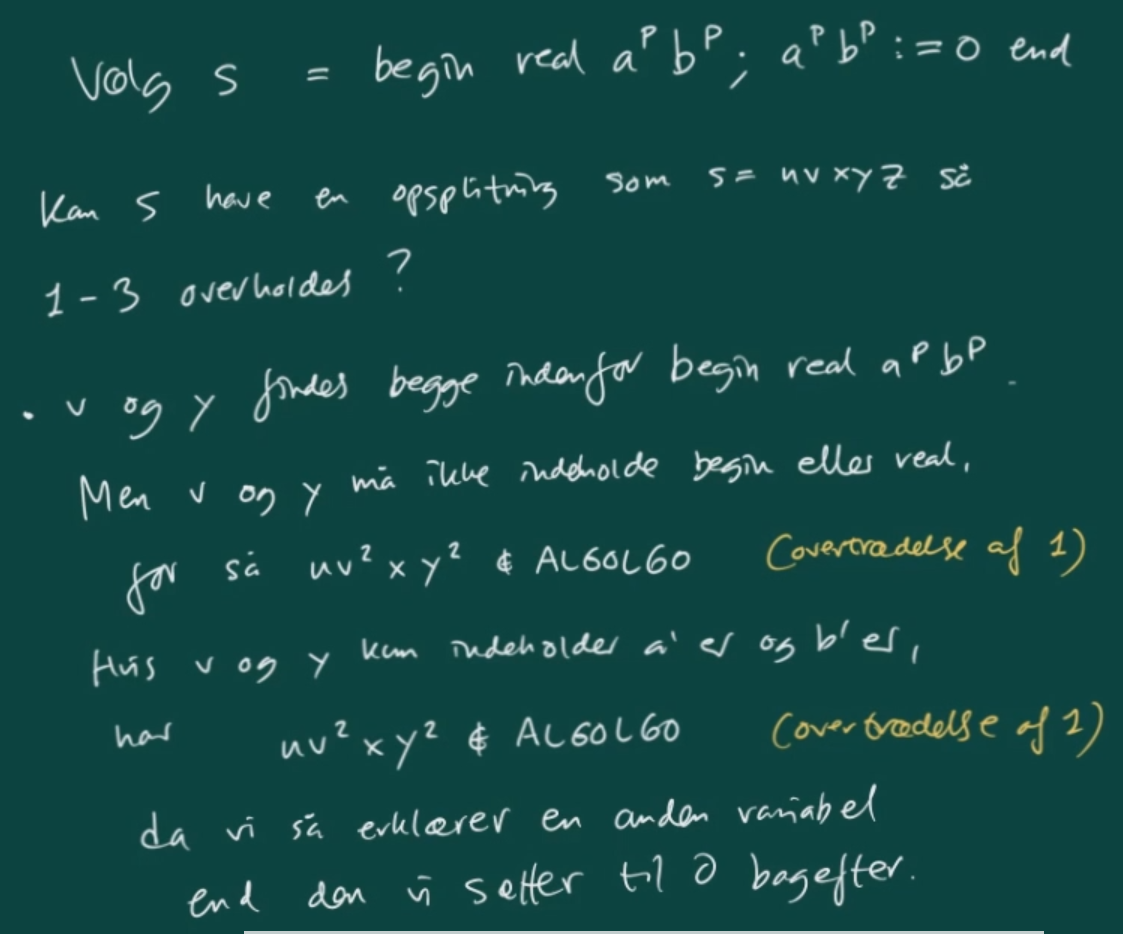 Vælg s = begin real aᵖbᵖ; aᵖbᵖ := 0 end
Kan s have en opsplitning som s = uvxyz så
1-3 overholdes ?
• v og y findes begge indenfor begin real aᵖbᵖ.
Men v og y må ikke indeholde begin eller real,
for så uv²xy² ∉ ALGOL60 (overtrædelse af 1)
Hvis v og y kun indeholder a'er og b'er,
har uv²xy² ∉ ALGOL60 (overtrædelse af 1)
da vi så erklærer en anden variabel
end den vi sætter til 0 bagefter.